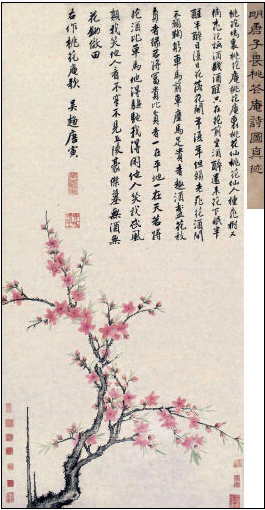 明唐子畏桃花庵詩圖真迹
桃花塢裏桃花庵桃花庵裏桃花仙桃花仙人種桃樹又
摘桃花換酒錢酒醒只在花前坐酒醉還來花下眠半
醒半醉日復日花落花開年復年但願老死花酒間
不願鞠躬車馬前車塵馬足貴者趣酒盞花枝
貧者緣若將富貴比貧者一在平地一在天若將
花酒比車馬他得驅馳我得閒他人笑我忒風
顛我笑他人看不穿不見五陵豪傑墓無酒無
花鋤做田
右作桃花庵歌 吳趨唐寅